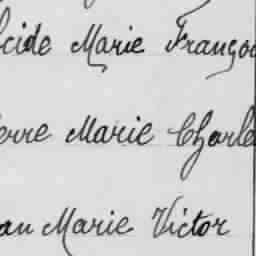 lcide Marie Françoi
erre Marie Charle
an Marie Victor